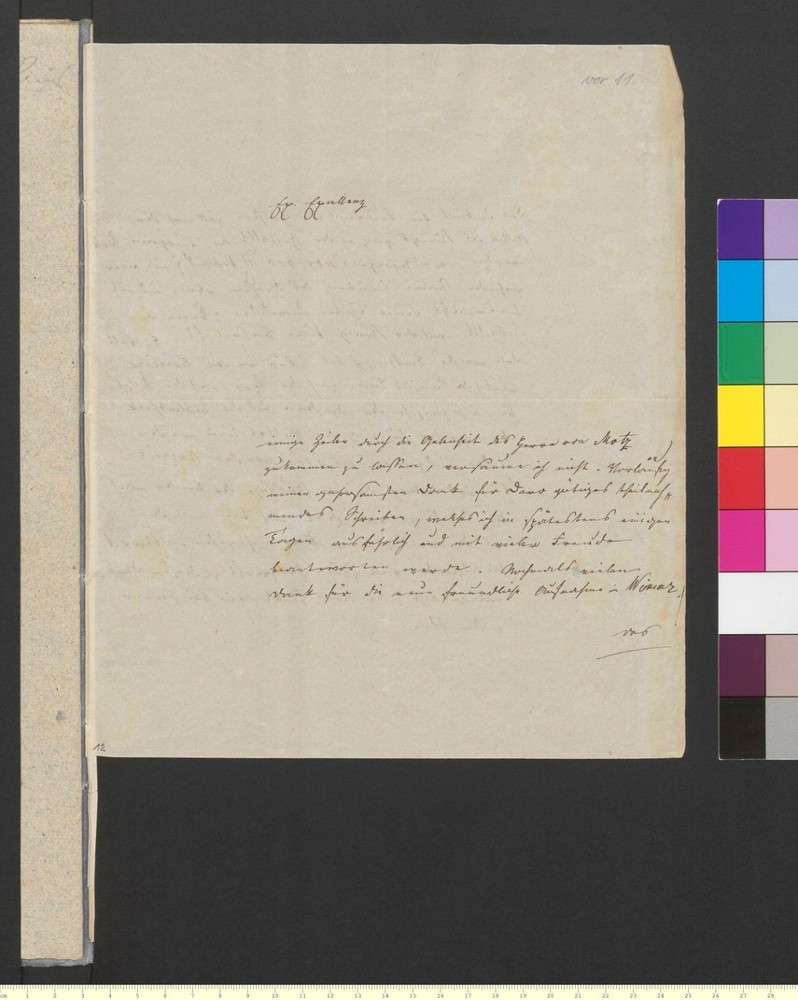 vor 11
Ew. Excellenz
einige Zeilen durch die Gelegenheit des Herrn von Motz
zukommen zu lassen, versäume ich nicht. Vorläufig
meinen gehorsamsten Dank für Dero gütiges theilneh„
mendes Schreiben, welches ich in spätestens einigen
Tagen ausführlich und mit vieler Freude
beantworten werde. Nochmals vielen
Dank für die freundliche Aufnahme in Weimar.
das
12